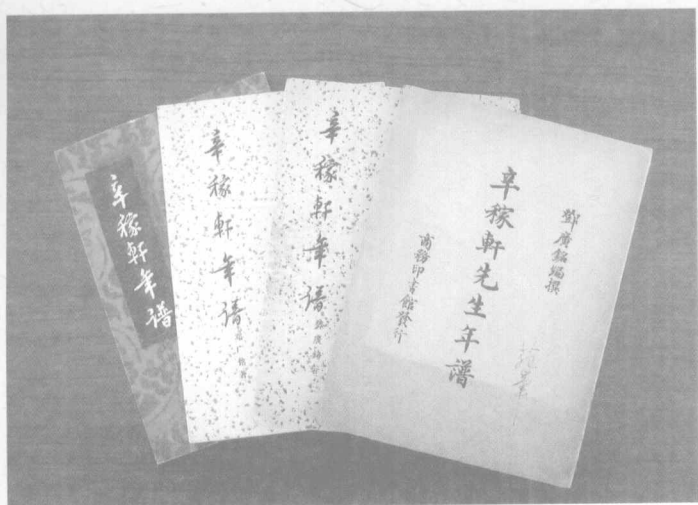 辛稼軒年譜
辛稼軒年譜
辛稼軒年譜
鄧廣銘編撰
辛稼軒先生年譜
商務印書館發行